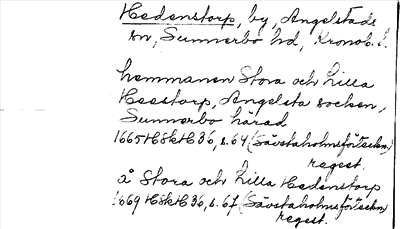 Hedenstorp, by, Angelstads
sn, Sunnerbo hd, Kronob. l.
hemmanen Stora och Lilla
Heestorp, Angelsta socken,
Sunnerbo härad
1665 HSkH 36, s. 64 (Sävstaholmsförteckn)
regest.
å Stora och Lilla Hedenstorp
1669 HSkH 36, s. 67 (Sävstaholmsförteckn)
regest.